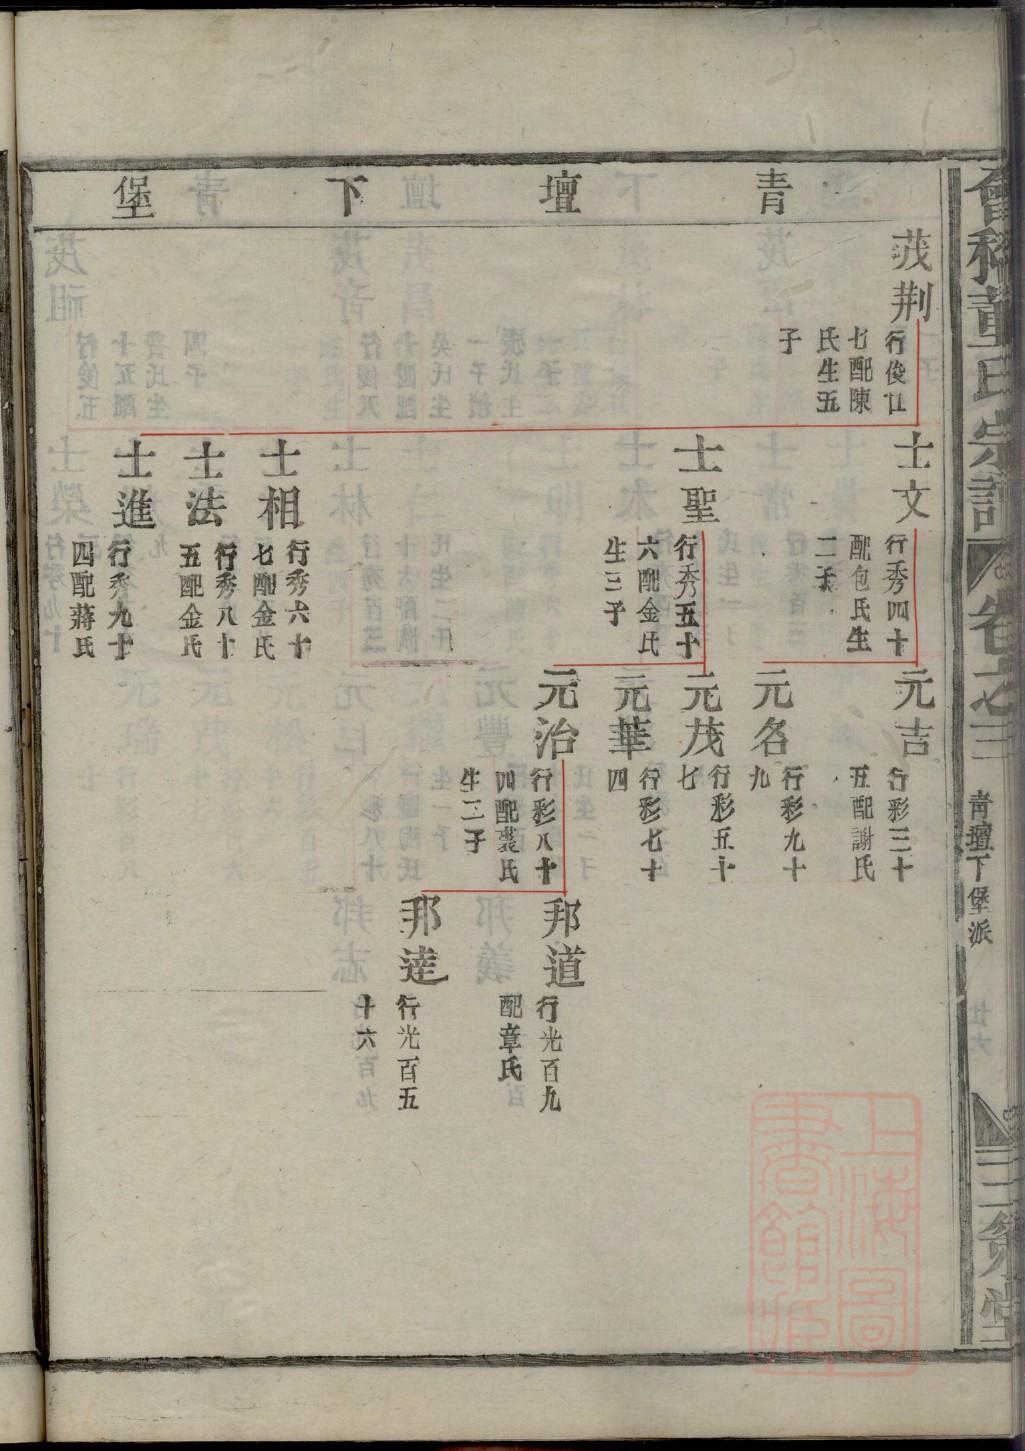 會稽董氏宗譜
卷之三
青壇下堡派
三策堂
青壇下堡
茂荆
行俊廿
七配陳
氏生五
子
士文
行秀四十
配包氏生
二子
士聖
行秀五十
六配金氏
生三子
士相
行秀六十
七配金氏
士法
行秀八十
五配金氏
士進
行秀九十
四配蔣氏
元吉
行彩三十
五配謝氏
元名
行彩九十
九
元茂
行彩五十
七
元華
行彩七十
四
元治
行彩八十
四配裘氏
生二子
邦道
行光百九
配章氏
邦達
行光百五
十六
上海圖
書館藏